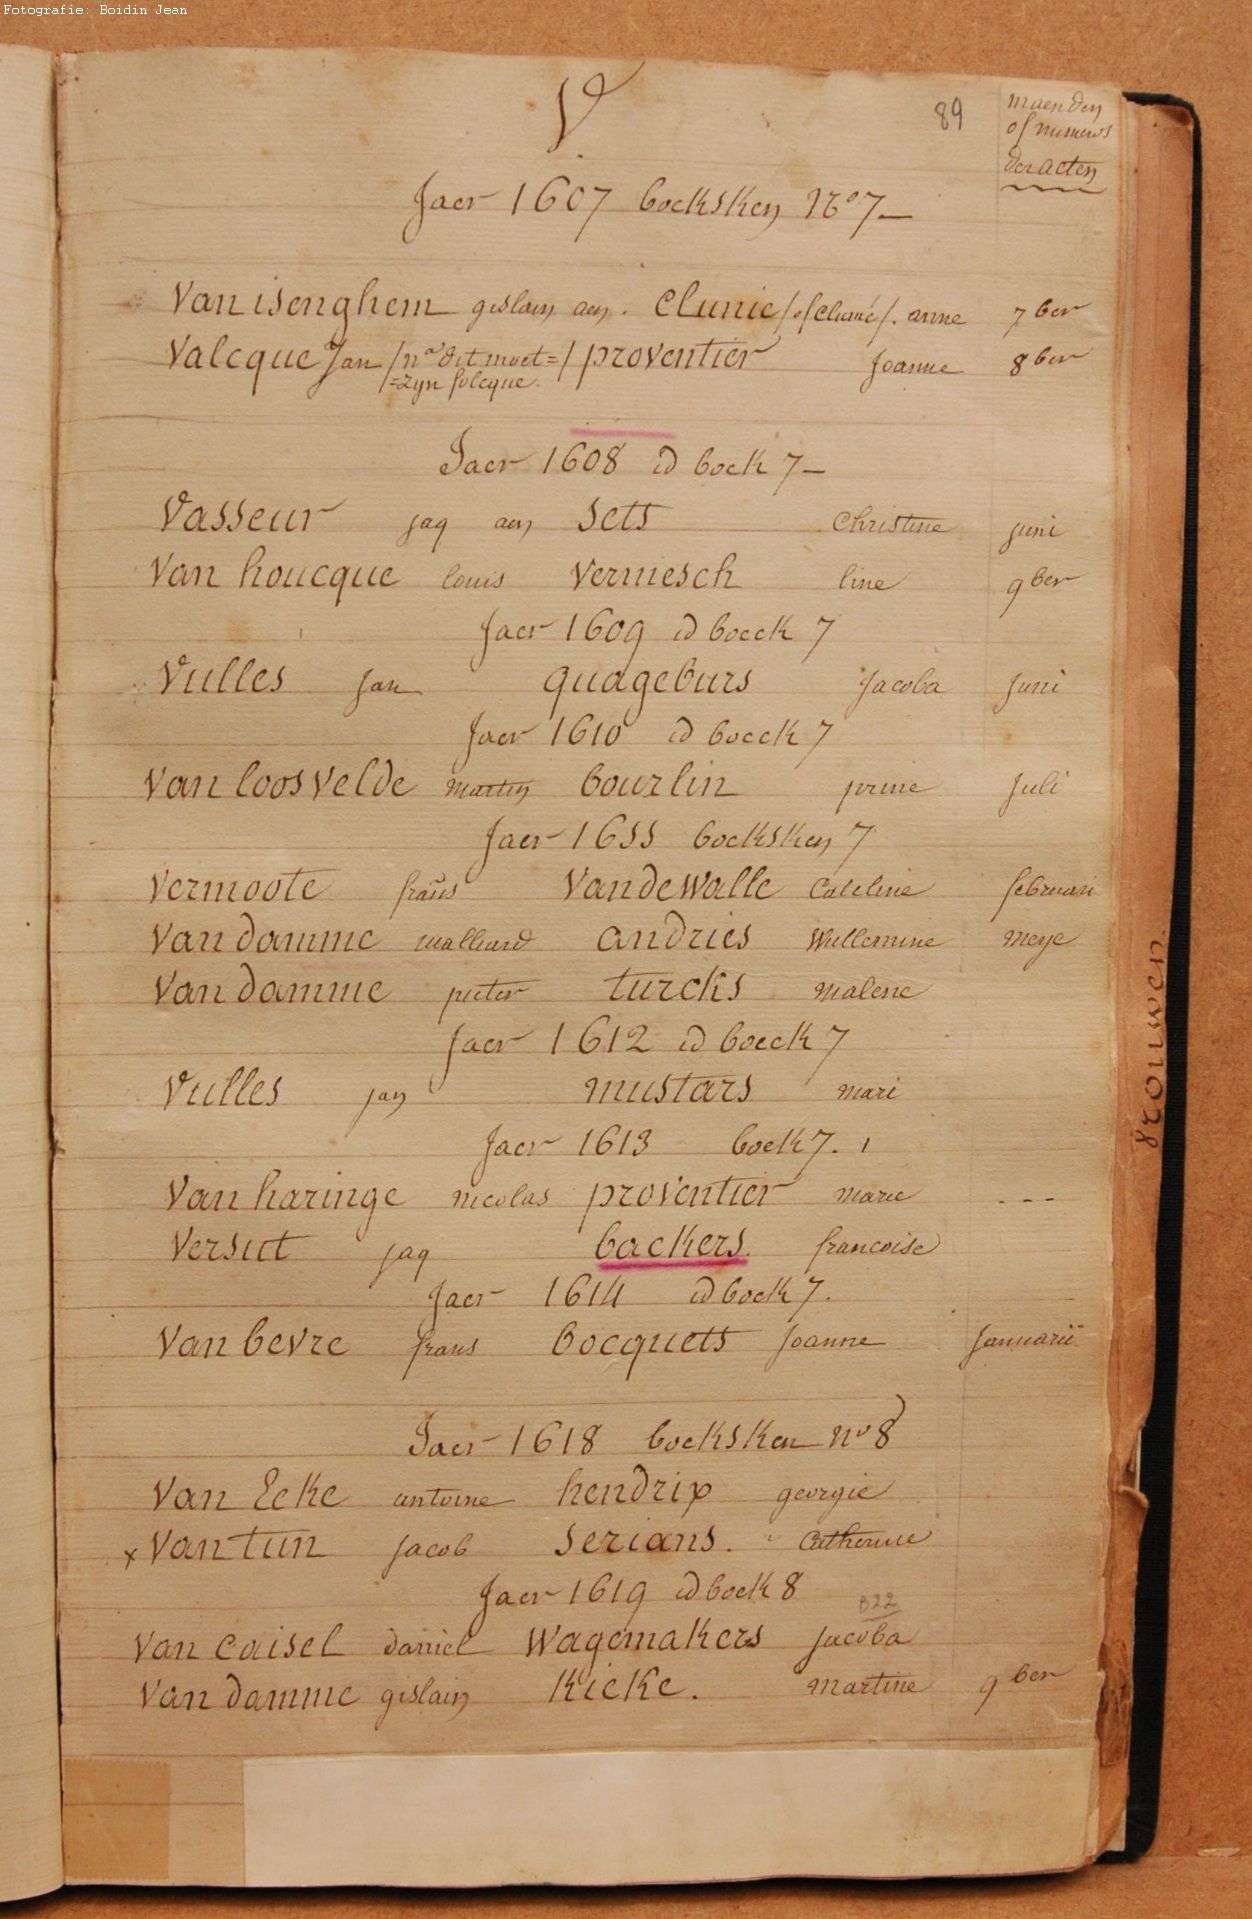 Fotografie: Boidin Jean
V
89
maenden
of numers
der acten
Jaer 1607 boeksken No 7
Van isenghem gislain aen. Clunie /of Clumé/. anne 7ber
Valcque Jan /na dit moet= / proventier Joanne 8ber
/=zyn folcque.
Jaer 1608 id boek 7
Vasseur jaq aen sets Christine juni
Van houcque louis vermesch line 9ber
Jaer 1609 id boeck 7
Vulles jan quageburs jacoba juni
Jaer 1610 id boeck 7
Van loosvelde martin bourlin prine juli
Jaer 1611 boeksken 7
Vermoote frans Vandewalle Cateline februari
Van damme andries Willemine meye
Van damme pieter turcks malene
Jaer 1612 id boeck 7
Vulles jan mustars mari
Jaer 1613 boek 7.
Van haringe nicolas proventier marie ---
Versut jaq backers francoise
Jaer 1614 id boek 7.
Van bevre frans bocquets joanne Januarii
Jaer 1618 boeksken no 8
Van Ecke antoine hendrix georgie
x Van tun jacob serians. Catherine
Jaer 1619 id boek 8
822
Van caisel daniel Wagemakers jacoba
Van damme gislain Kieke. martine 9ber
vrouwen